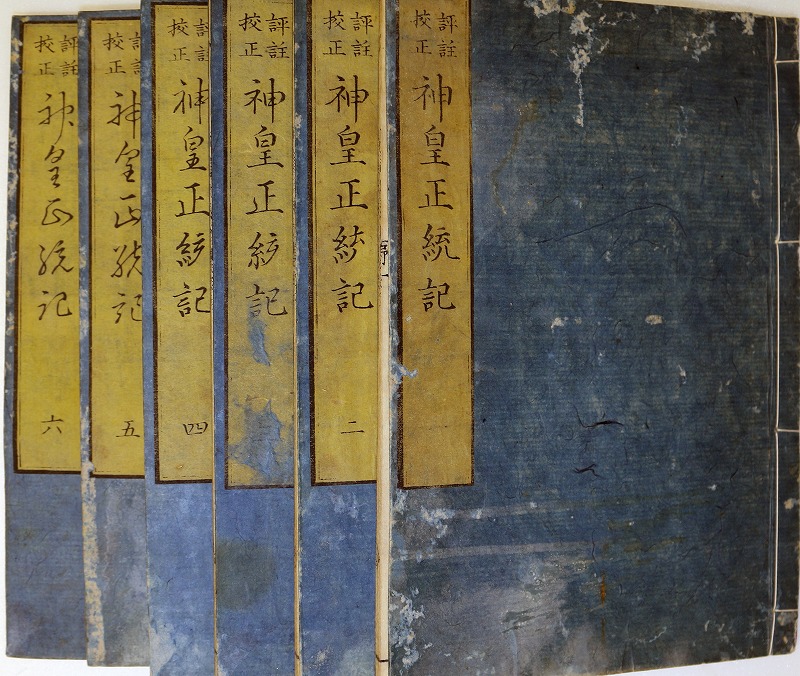 評註
校正
神皇正統記
一
序一
評註
校正
神皇正統記
二
評註
校正
神皇正統記
三
評註
校正
神皇正統記
四
評註
校正
神皇正統記
五
評註
校正
神皇正統記
六